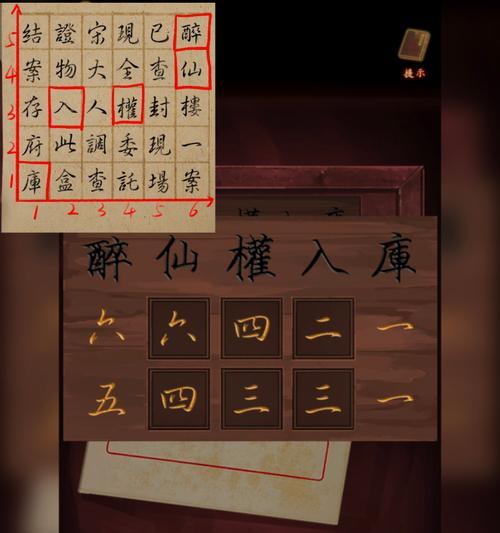 5 結 證 宗 現 已 醉
4 案 物 大 全 查 仙
3 存 入 人 權 封 樓
2 府 此 調 委 現 一
1 庫 盒 查 託 場 案
1 2 3 4 5 6
提示
醉 仙 權 入 庫
六 六 四 二 一
五 四 三 三 一